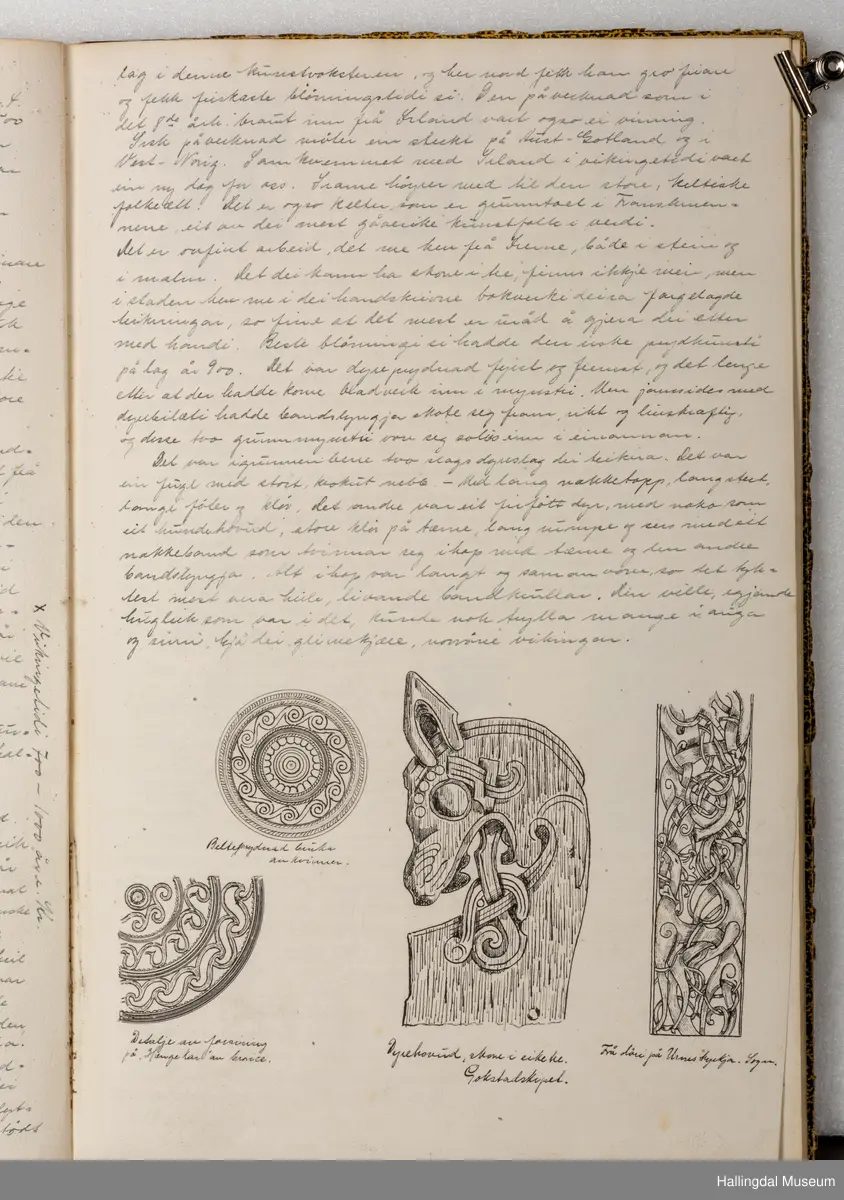 lag i denne kunstvoksteren, og her nord fekk han gro friare
og fekk friskaste blømingstidi si. Den påverknad som i
det 8de årh. braut inn frå Irland vart også ei vinning.
Irsk påverknad møter en sterkt på Aust-Gotland og i
Vest-Norig. Samkvemmet med Irland i vikingetidi vart
ein ny dag for oss. Irane høyrer med til den store, keltiske
folkeætt. Det er ogso kelter, som er grunntoet i Franskmen-
nene, eit av dei mest gåverike kunstfolk i verdi.
Det er ovfint arbeid, det me hev frå Irerne, både i stein og
i malm. Det dei kann ha skore i tre, finns ikkje meir, men
i staden hev me i dei handskrivne bokverki deira fargelagde
teikningar, so fine at det mest er uråd å gjera dei etter
med handi. Beste blømingi si hadde den irske prydkunsti
på lag år 900. Det var dyreprydnad fyrst og fremst, og det lenge
etter at der hadde kome bladverk inn i mynstri. Men jamsides med
dyrebilæti hadde bandslyngja skote seg fram, rikt og livskraftig,
og disse two grunnmynstri vov seg soleis inn i einannan.
Det var i grunnen berre two slags dyreslag dei teikna. Det var
ein fugl med stort, krokut nebb, - med lang nakketopp, langstert,
lange føter og klør. Det andre var eit firføtt dyr, med noko som
eit hundehovud, store klør på tærne, lang rumpe og sers med eit
nakkeband som tvinnar seg ihop med tærne og den andre
bandslyngja. Alt ihop var langt og saman vove, so det tyk-
test mest vera heile, livande bandkrullar. Den ville, egjande
hugleik som var i det, kunde nok trylla mange i auga
og sinn, hjå dei glimekjære, norrøne vikingar.
x Vikingetidi 700 - 1000 år e. Kr.
Belteprydnad bruka
av kvinner.
Detalje av prising
på Hengekar av bronce.
Dyrehovud, skore i eiketre.
Gokstadskipet.
Frå döri på Urnes kyrkja. Sogn.
Hallingdal Museum